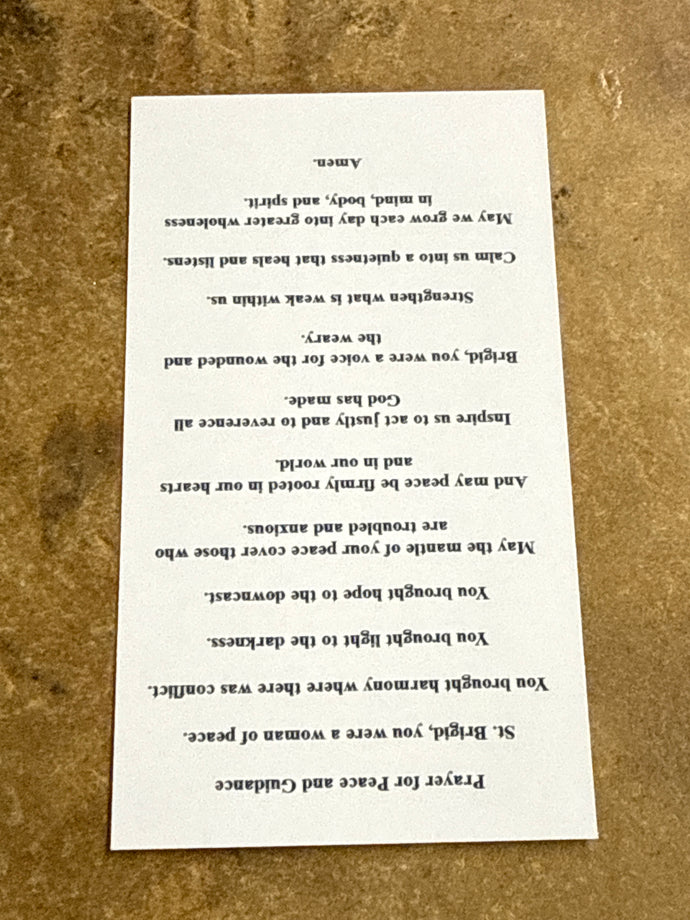 Prayer for Peace and Guidance
St. Brigid, you were a woman of peace.
You brought harmony where there was conflict.
You brought light to the darkness.
You brought hope to the downcast.
May the mantle of your peace cover those who
are troubled and anxious.
And may peace be firmly rooted in our hearts
and in our world.
Inspire us to act justly and to reverence all
God has made.
Brigid, you were a voice for the wounded and
the weary.
Strengthen what is weak within us.
Calm us into a quietness that heals and listens.
May we grow each day into greater wholeness
in mind, body, and spirit.
Amen.